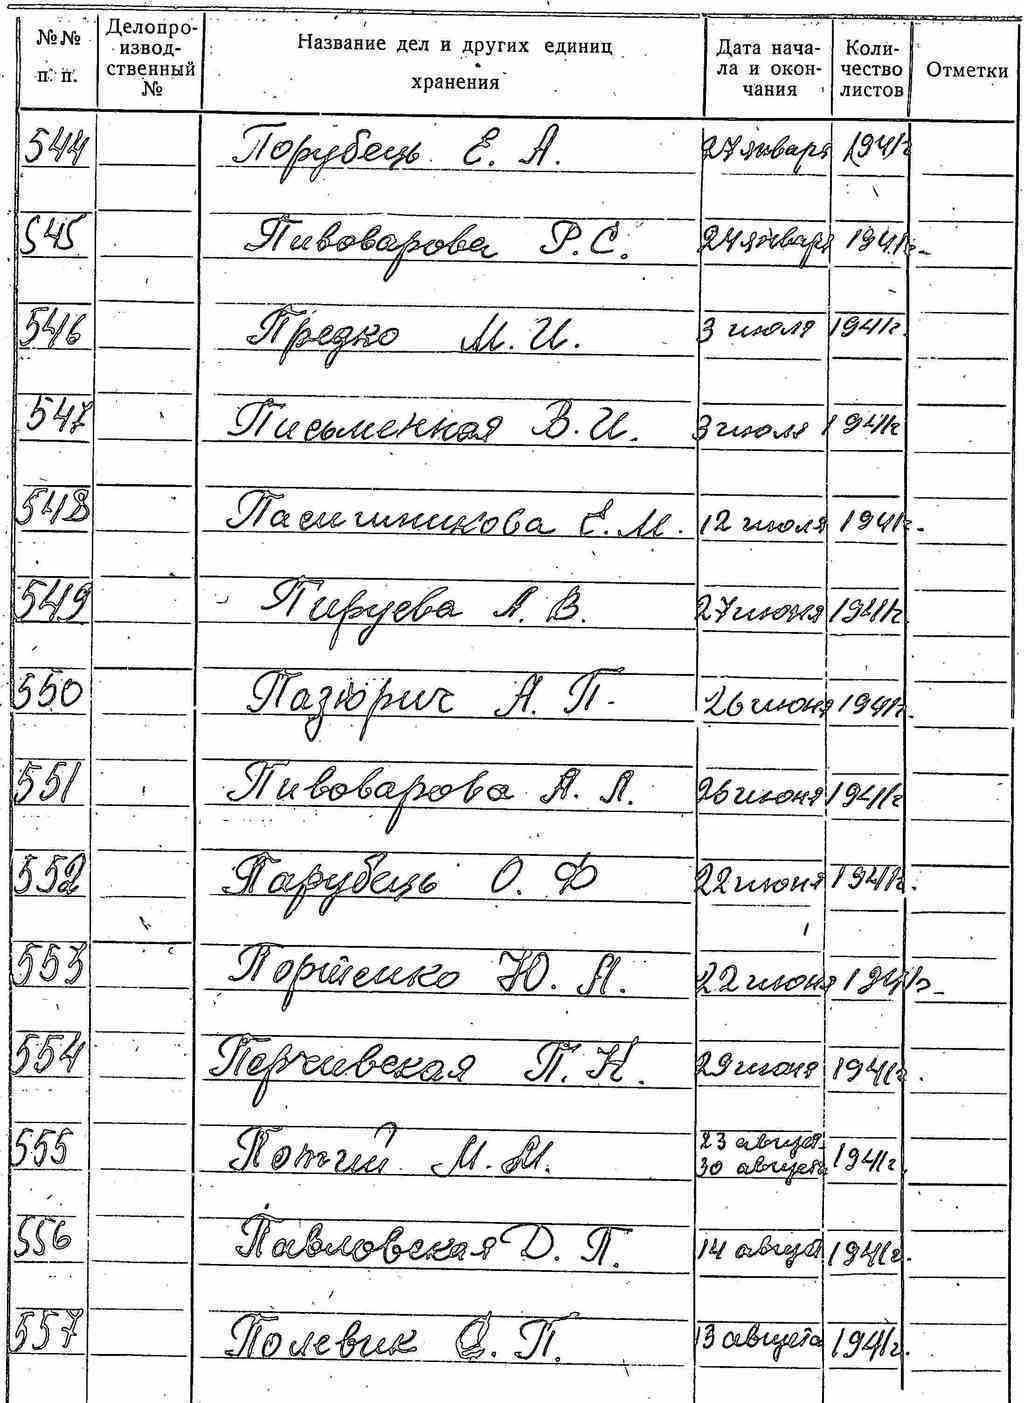 №№ п. п. Делопро-изводственный № Название дел и других единиц хранения Дата начала и окончания Количество листов Отметки
544 Порубець Е. А. 27 января 1941г
545 Пивоварова Р. С. 24 января 1941г.
546 Предко М. И. 3 июля 1941г.
547 Письменная В. И. 3 июля 1941г
548 Е. М. 12 июля 1941г.
549 Пируева А. В. 27 июня 1941г.
550 Пазюрич А. П. 26 июня 1941г.
551 Пивоварова А. Л. 26 июня 1941г
552 Парубець О. Ф 22 июня 1941г.
553 Портенко Ю. А. 22 июня 1941г.
554 П. Н. 29 июня 1941г.
555 М. М. 23 август 30 августа 1941г.
556 Павловская Д. П. 14 август 1941г.
557 Полевик О. П. 13 августа 1941г.